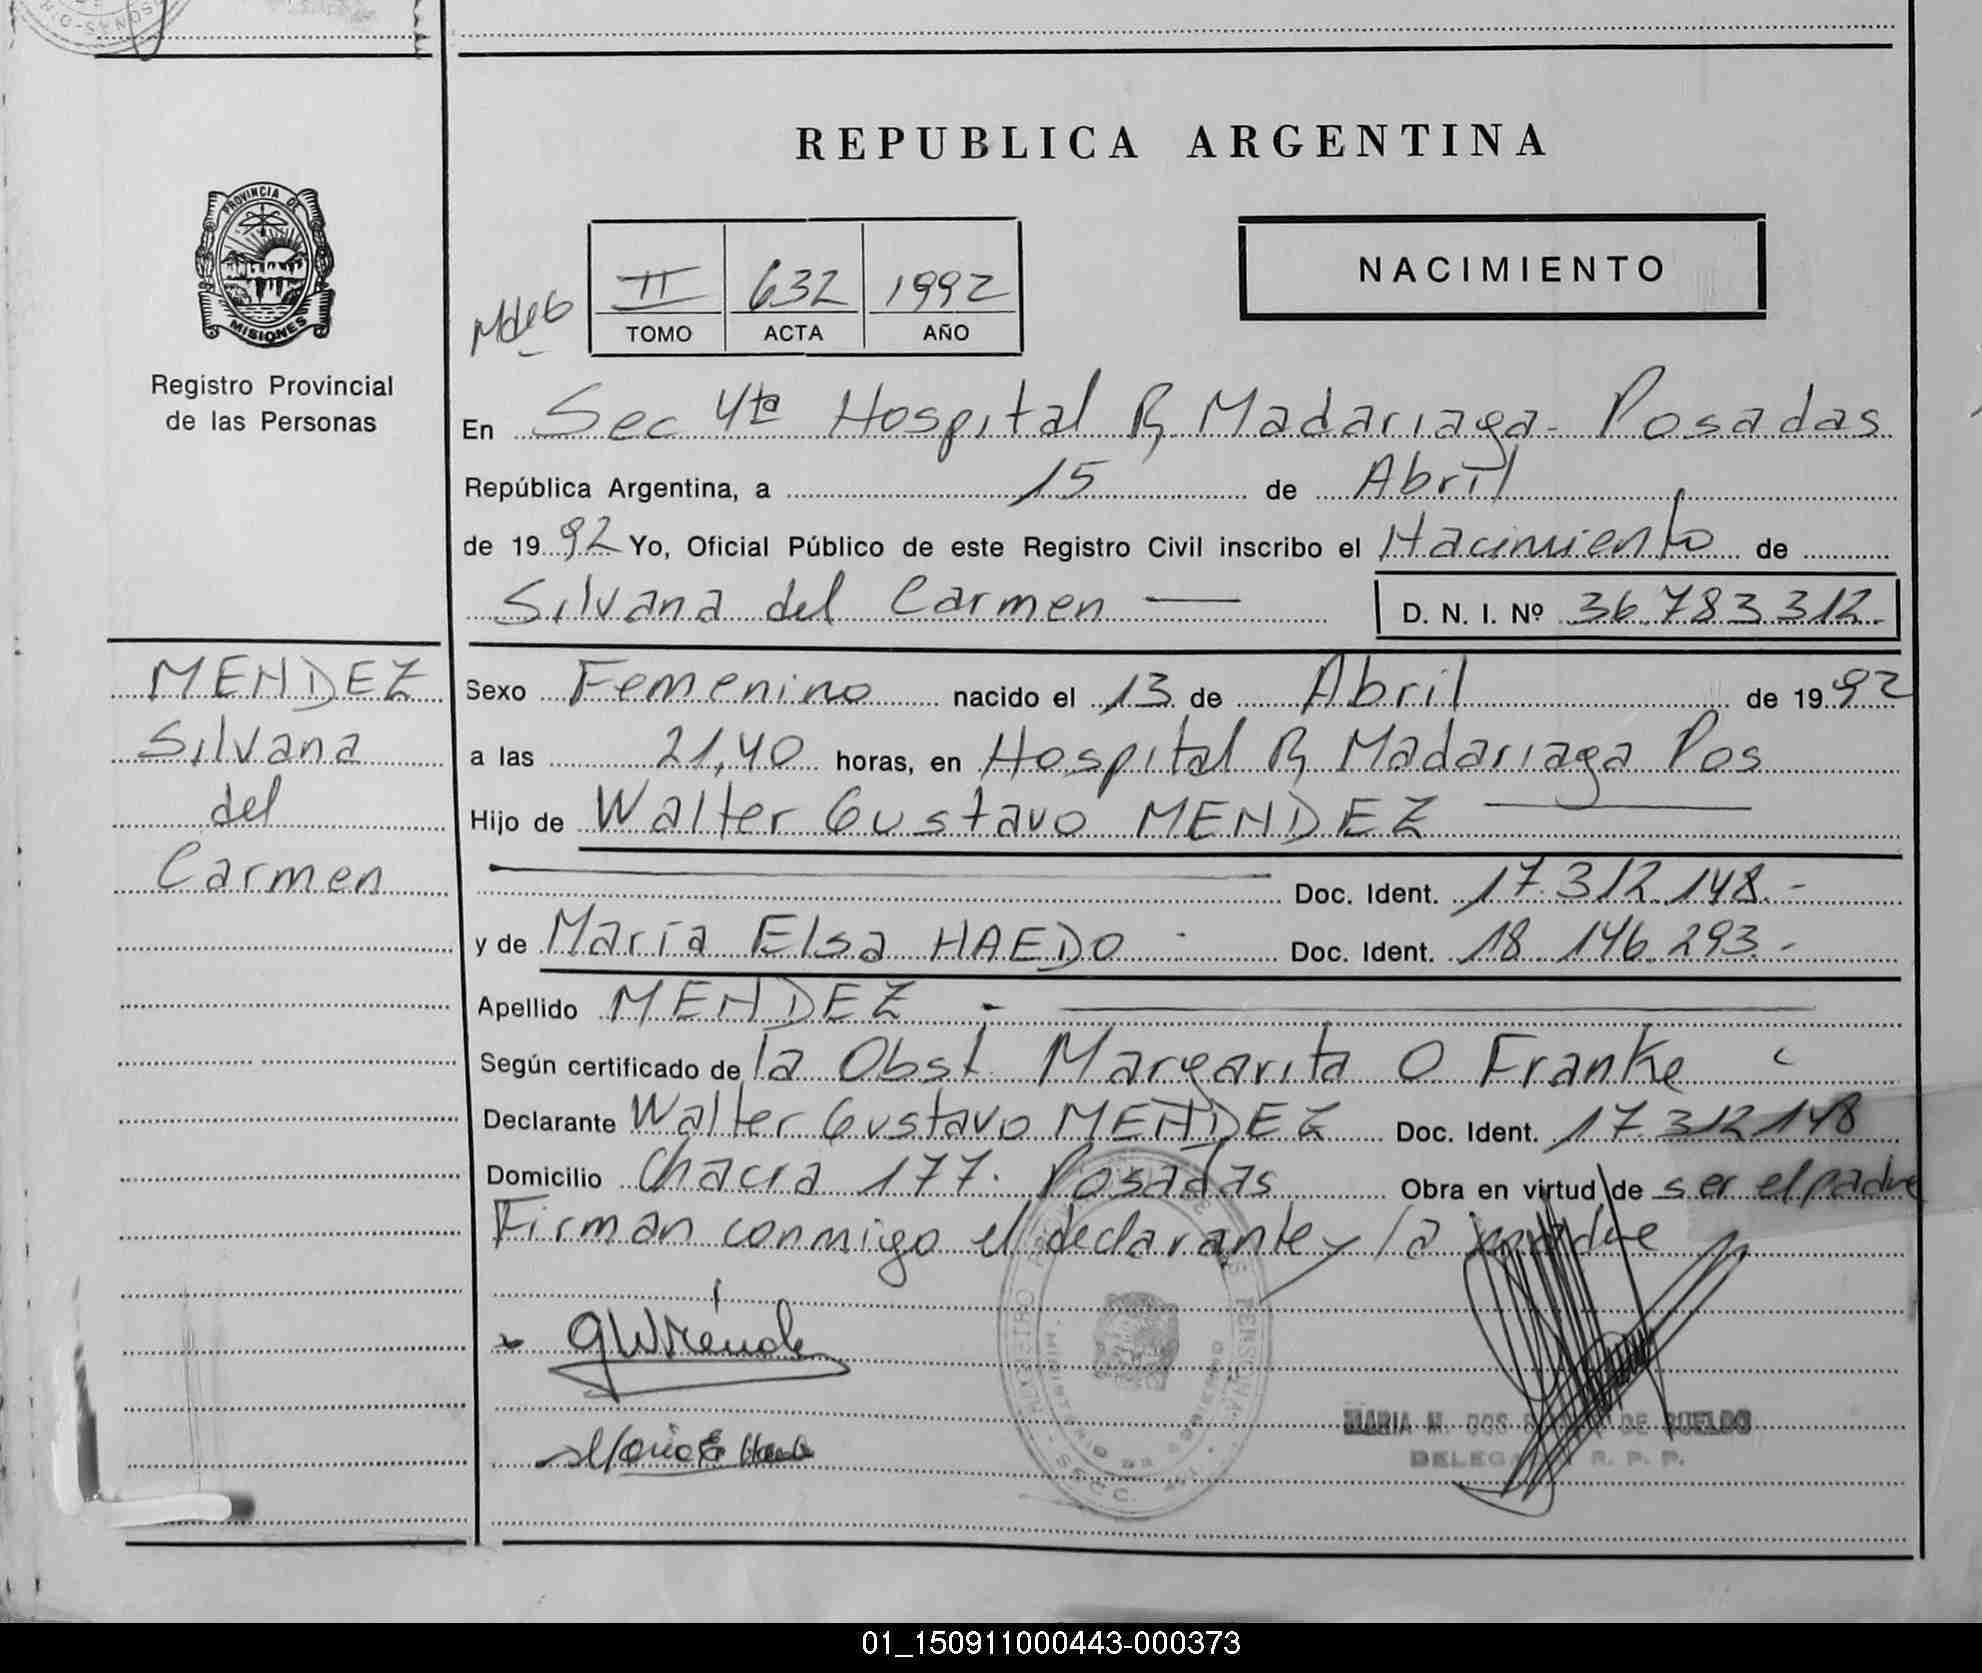 REPUBLICA ARGENTINA
PROVINCIA DE
MISIONES
Registro Provincial
de las Personas
NACIMIENTO
II 632 1992
TOMO ACTA AÑO
En Sec 4ta Hospital R, Madariaga - Posadas
República Argentina, a 15 de Abril
de 1992 Yo, Oficial Público de este Registro Civil inscribo el Nacimiento de
Silvana del Carmen — D. N. I. Nº 36.783.312.-
MENDEZ
Silvana
del
Carmen
Sexo Femenino nacido el 13 de Abril de 1992
a las 21,40 horas, en Hospital R, Madariaga Pos
Hijo de Walter Gustavo MENDEZ —
Doc. Ident. 17.312.148.-
y de María Elsa HAEDO - Doc. Ident. 18.146.293.-
Apellido MENDEZ - —
Según certificado de la Obst. Margarita O Franke
Declarante Walter Gustavo MENDEZ Doc. Ident. 17.312148
Domicilio Chacra 177. Posadas Obra en virtud de ser el padre
Firman conmigo el declarante y la madre
MARIA M. DOS DE SUELDO
R. P. P.
01_150911000443-000373